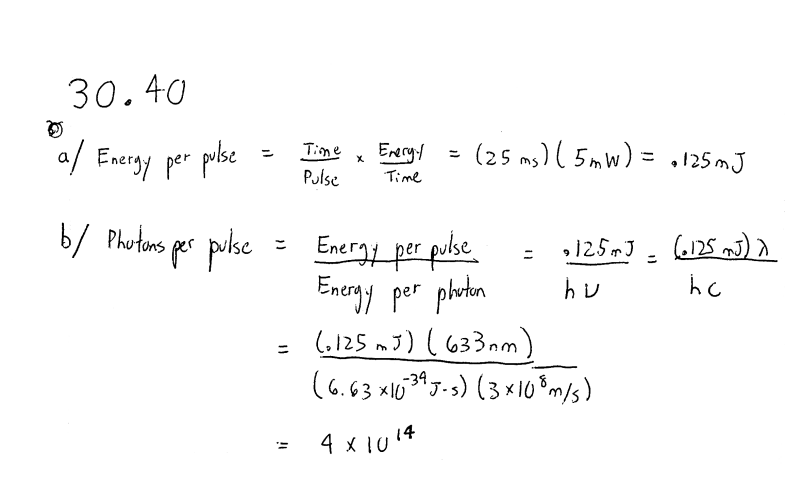 30.40
a/ Energy per pulse = Time/Pulse × Energy/Time = (25 ms)(5mW) = .125mJ
b/ Photons per pulse = Energy per pulse/Energy per photon = .125mJ/hν = (.125 mJ)λ/hc
= (.125 mJ)(633nm)/(6.63×10^-34 J·s)(3×10^8 m/s)
= 4×10^14